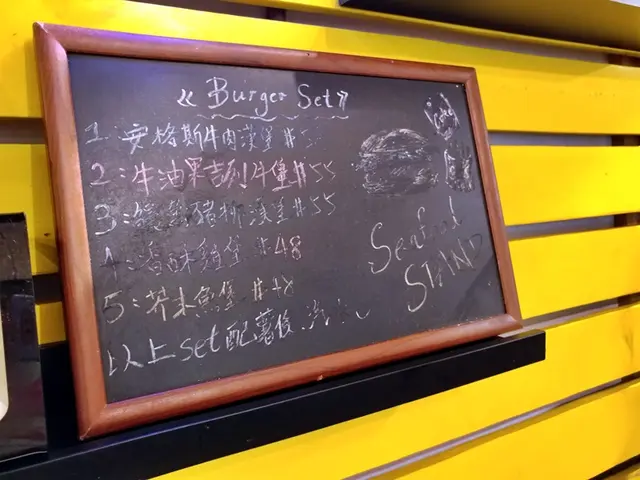 《 Burger Set 》
1. 安格斯牛肉漢堡 #5
2: 牛油果吉列牛堡 #55
3: 豬柳漢堡 #55
4: 香酥雞堡 #48
5: 芥末魚堡 #48
以上set配薯條.汽水
Seafood
STAND